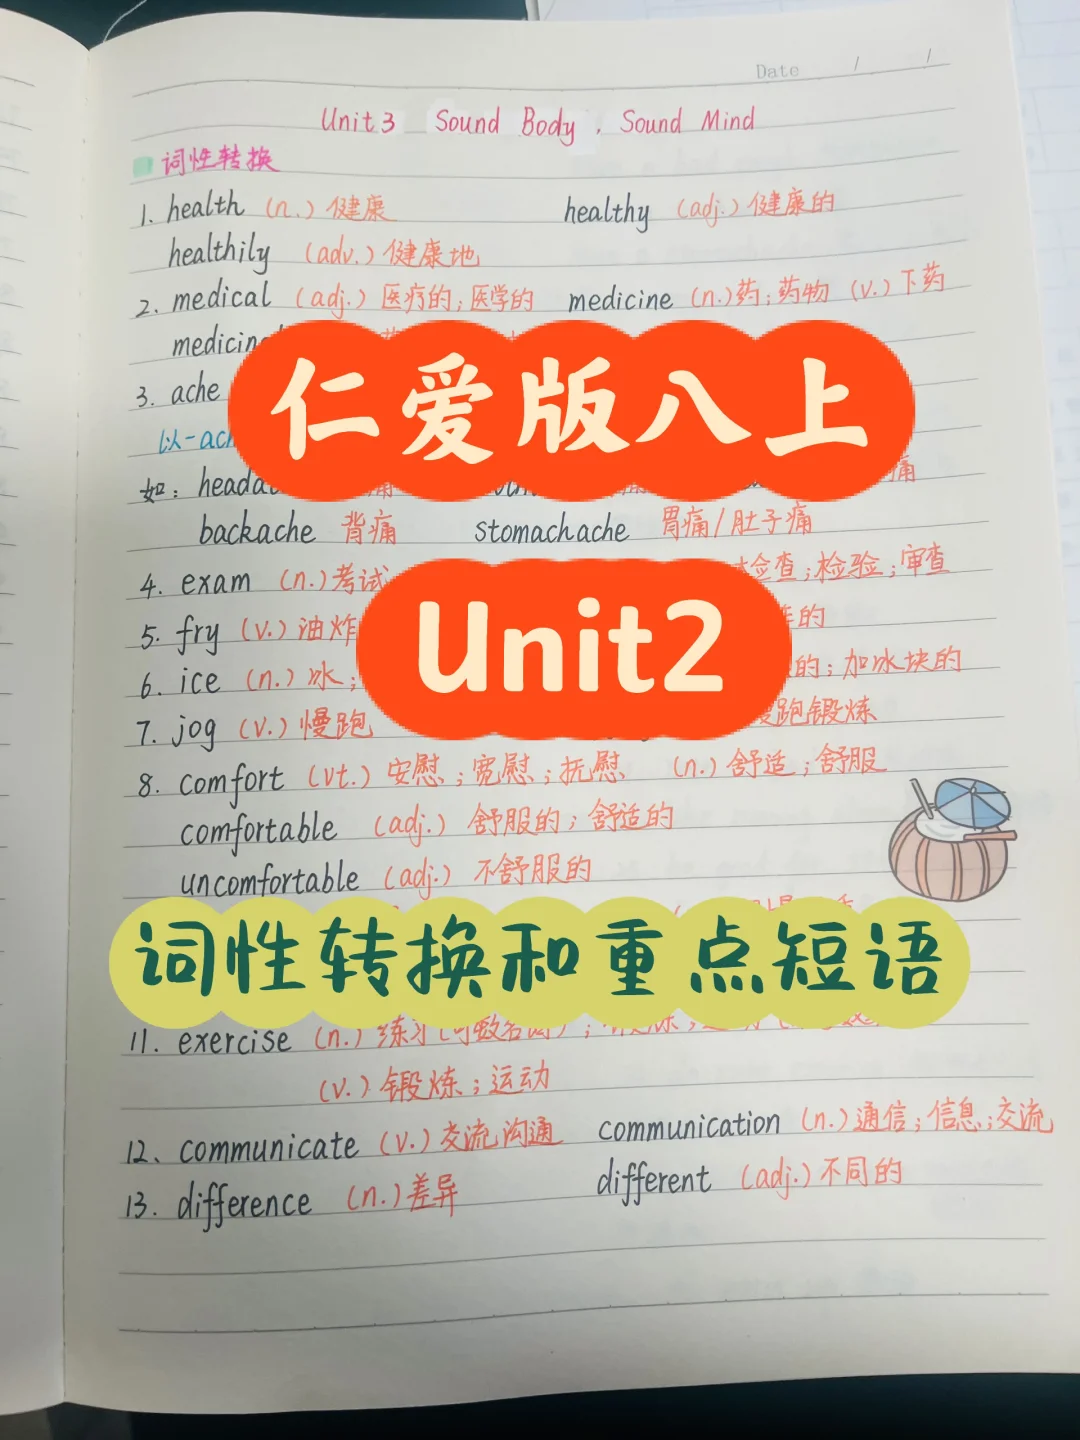 Date / /
Unit 3 Sound Body, Sound Mind
词性转换
1. health (n.) 健康 healthy (adj.) 健康的
healthily (adv.) 健康地
2. medical (adj.) 医疗的;医学的 medicine (n.)药;药物 (v.)下药
3. ache
仁爱版八上
以-ach
如: 痛
backache 背痛 stomachache 胃痛/肚子痛
4. exam (n.)考试 检查;检验;审查
5. fry (v.)油炸 的
Unit2
6. ice (n.)冰; 的;加冰块的
7. jog (v.)慢跑 慢跑锻炼
8. comfort (vt.) 安慰;宽慰;抚慰 (n.)舒适;舒服
comfortable (adj.) 舒服的;舒适的
uncomfortable (adj.) 不舒服的
词性转换和重点短语
11. exercise (n.) 练习
(v.)锻炼;运动
12、communicate (v.)交流沟通 communication (n.)通信;信息;交流
13. difference (n.)差异 different (adj.)不同的